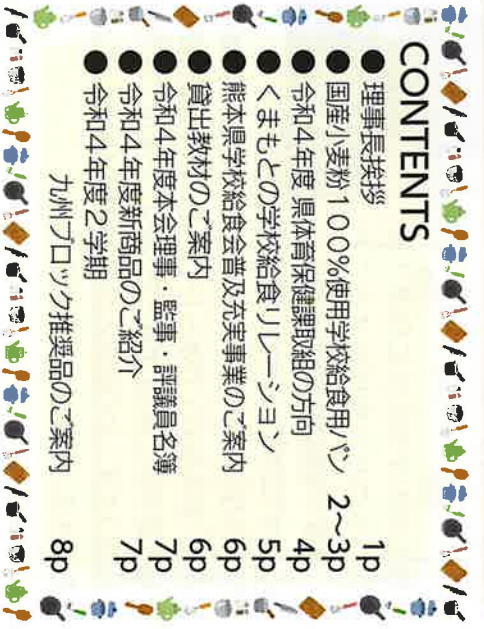 CONTENTS
●理事長挨拶 1p
●国産小麦粉100%使用学校給食用パン 2〜3p
●令和4年度 県体育保健課取組の方向 4p
●くまもとの学校給食リレーション 5p
●熊本県学校給食会普及充実事業のご案内 6p
●貸出教材のご案内 6p
●令和4年度本会理事・監事・評議員名簿 7p
●令和4年度新商品のご紹介 7p
●令和4年度2学期
九州ブロック推奨品のご案内 8p